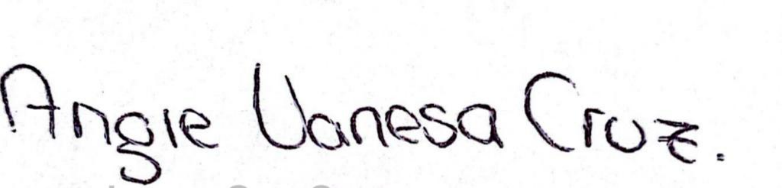 Angie Vanesa Cruz.